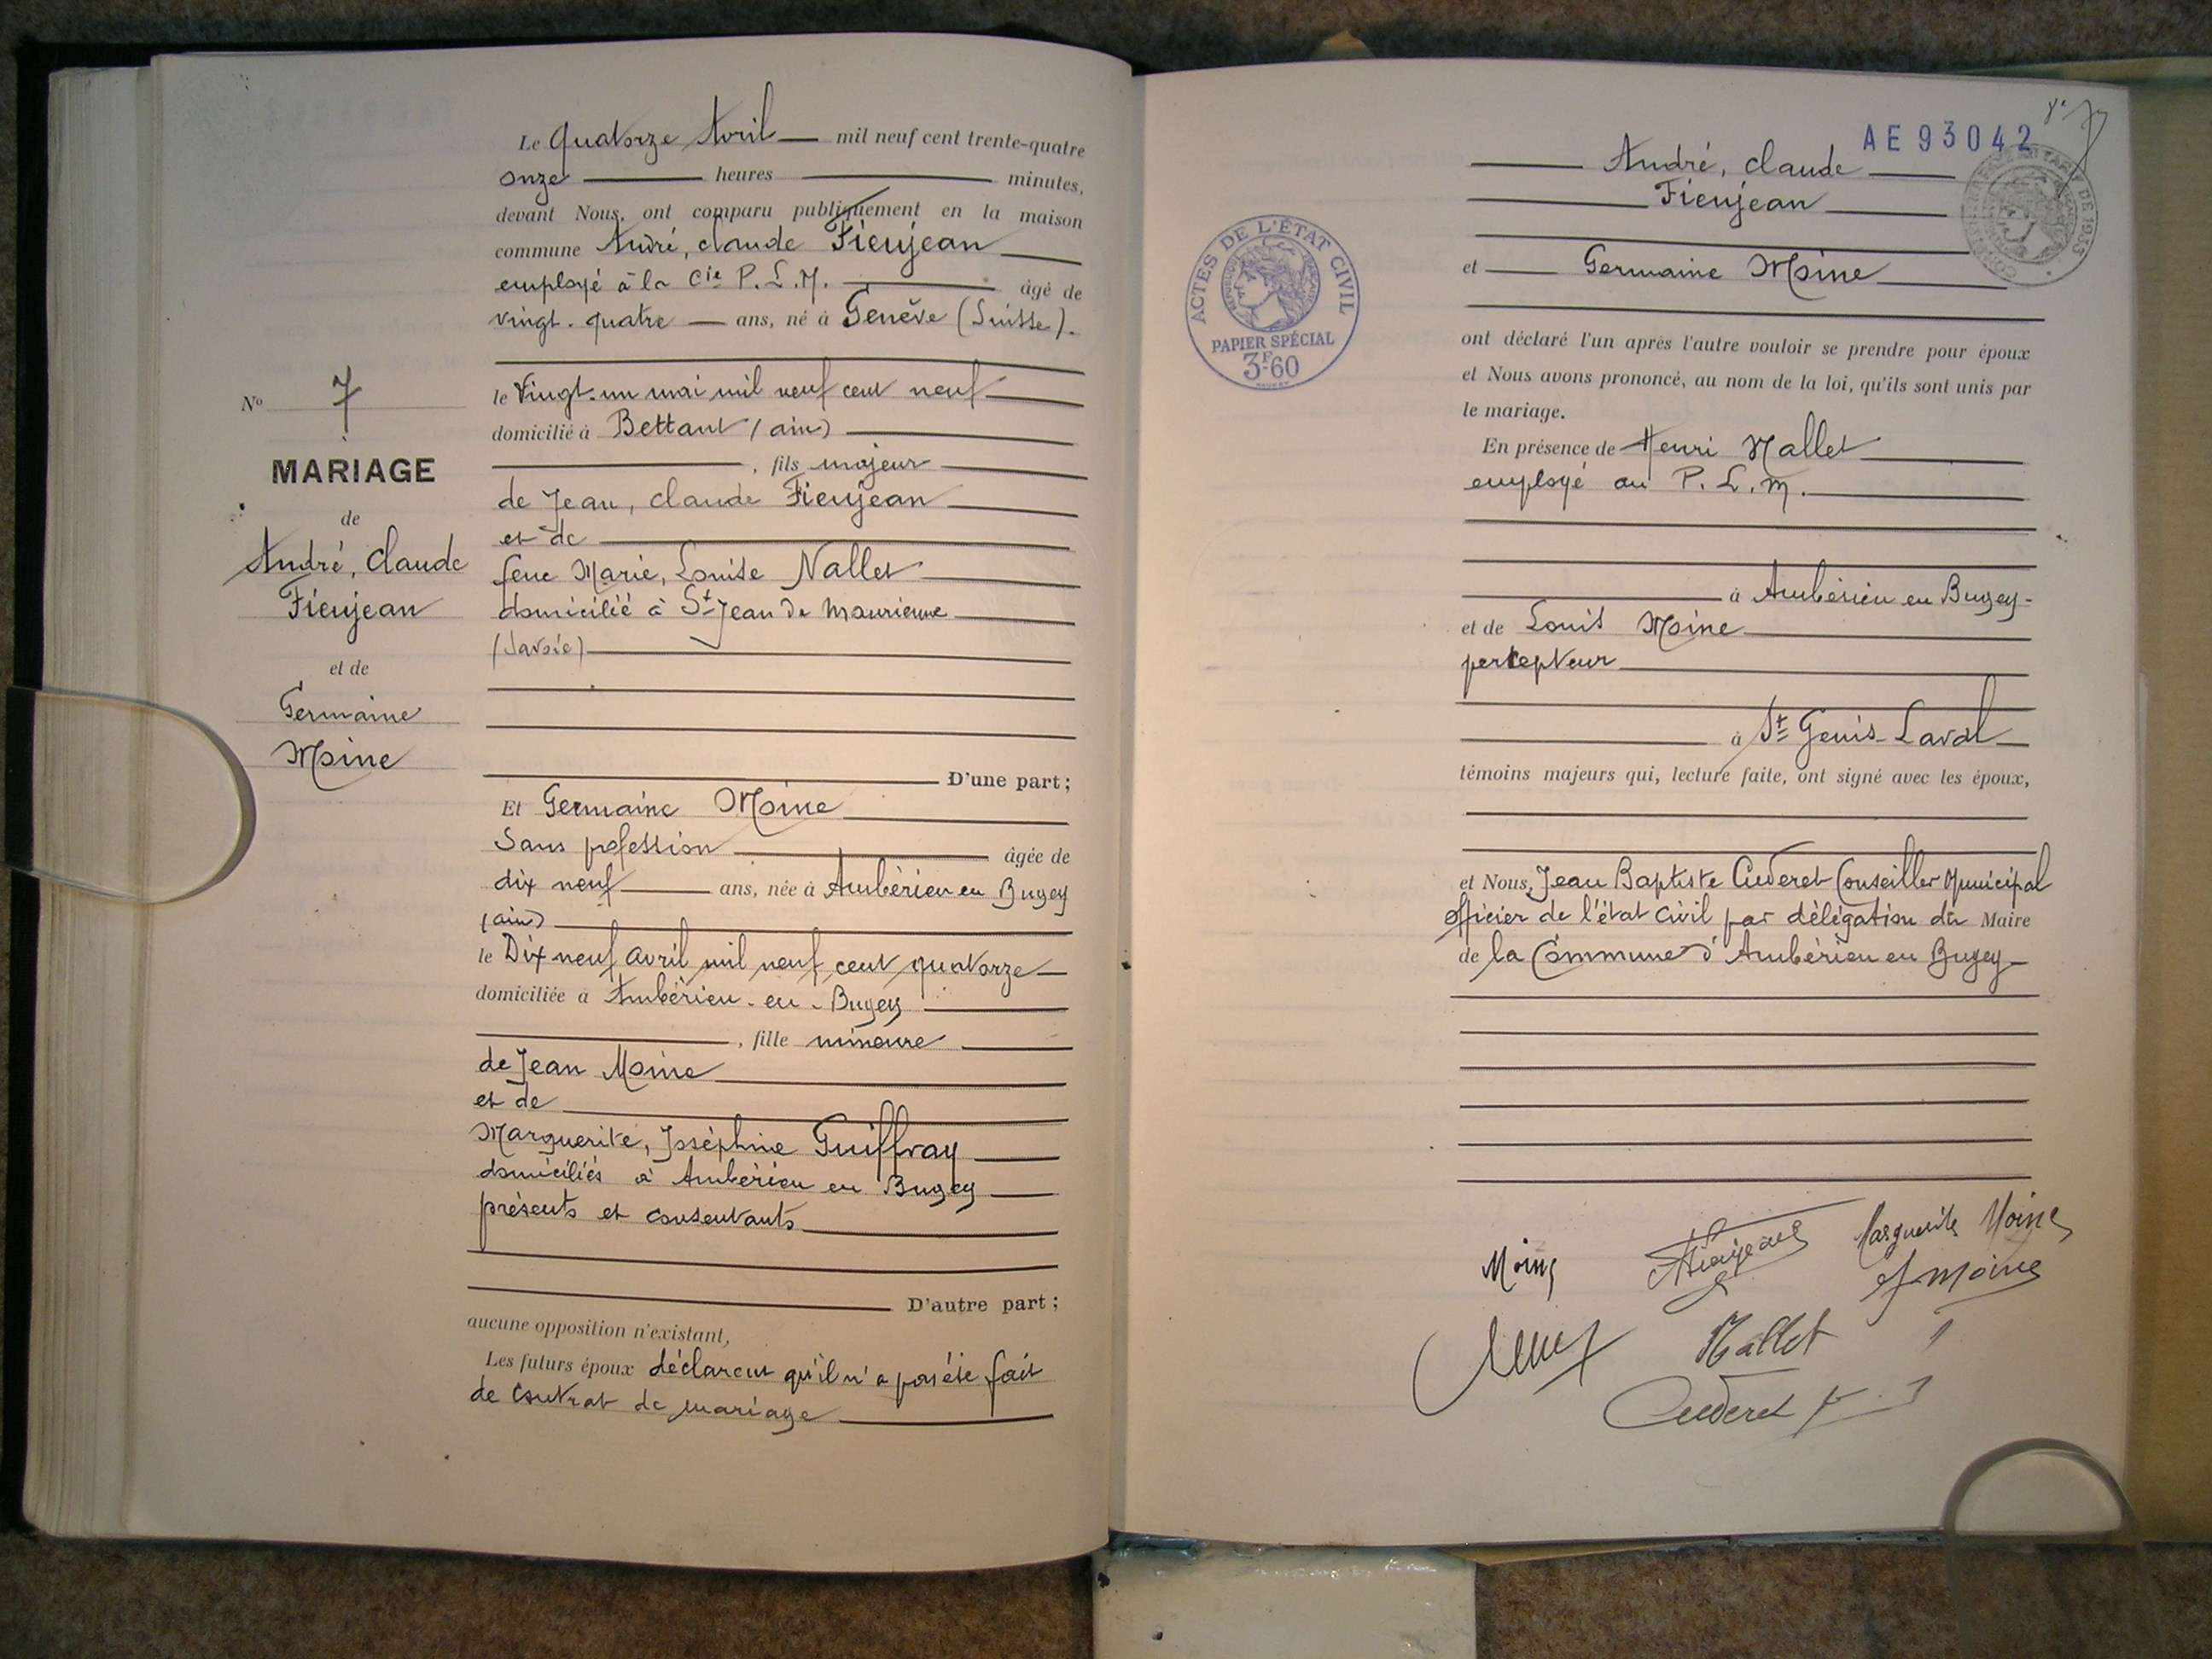 Le Quatorze Avril mil neuf cent trente-quatre
onze heures minutes,
devant Nous, ont comparu publiquement en la maison
commune André, claude Fieujean
employé à la Cie P.L.M. âgé de
vingt-quatre ans, né à Genève (Suisse).
le Vingt-un mai mil neuf cent neuf
domicilié à Bettant (ain)
, fils majeur
de Jean, claude Fieujean
et de
feue Marie, Louise Nallet
domicilié à St Jean de Maurienne
(Savoie)
D'une part;
Et Germaine Moine
Sans profession âgée de
dix neuf ans, née à Ambérieu en Bugey
(ain)
le Dix neuf avril mil neuf cent quatorze
domiciliée à Ambérieu-en-Bugey
, fille mineure
de Jean Moine
et de
Marguerite, Joséphine Guiffray
domiciliés à Ambérieu en Bugey
présents et consentants
D'autre part;
aucune opposition n'existant,
Les futurs époux déclarent qu'il n'a pas été fait
de contrat de mariage
No 7
MARIAGE
de
André, Claude
Fieujean
et de
Germaine
Moine
AE 93042
André, claude
Fieujean
et Germaine Moine
ACTES DE L'ÉTAT CIVIL
RÉPUBLIQUE FRANÇAISE
PAPIER SPÉCIAL
3F60
ont déclaré l'un après l'autre vouloir se prendre pour époux
et Nous avons prononcé, au nom de la loi, qu'ils sont unis par
le mariage.
En présence de Henri Nallet
employé au P.L.M.
à Ambérieu en Bugey-
et de Louis Moine
percepteur
à St Genis-Laval
témoins majeurs qui, lecture faite, ont signé avec les époux,
et Nous, Jean Baptiste Cuderet Conseiller Municipal
officier de l'état civil par délégation du Maire
de la Commune d'Ambérieu en Bugey
Moine Fieujean Marguerite Moine
G Moine
Nallet
Cuderet